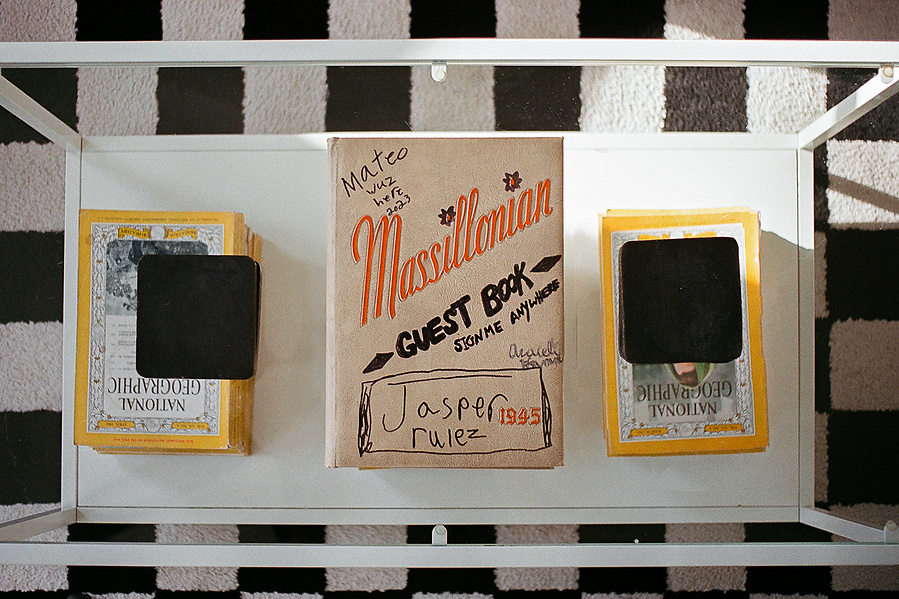 Mateo
wuz
here
2023
Massillonian
GUEST BOOK
SIGN ME ANYWHERE
Jasper
rulez
1945
NATIONAL
GEOGRAPHIC
NATIONAL
GEOGRAPHIC